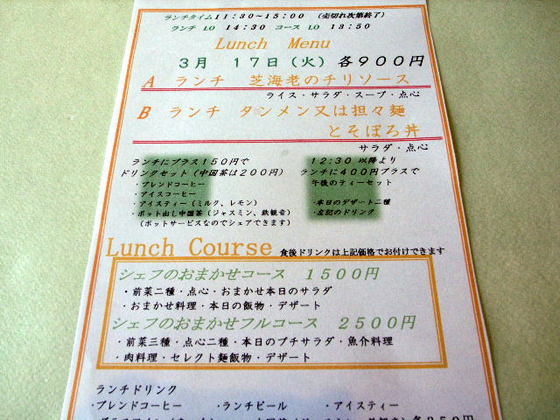 ランチタイム11:30~15:00 (売切れ次第終了)
ランチ LO 14:30 コース LO 13:50
Lunch Menu
3月 17日(火) 各900円
A ランチ 芝海老のチリソース
ライス・サラダ・スープ・点心
B ランチ タンメン又は担々麺
とそぼろ丼
サラダ・点心
ランチにプラス150円で
ドリンクセット(中国茶は200円)
・ブレンドコーヒー
・アイスコーヒー
・アイスティー(ミルク、レモン)
・ポット出し中国茶(ジャスミン、鉄観音)
(ポットサービスなのでシェアできます)
12:30 以降より
ランチに400円プラスで
午後のティーセット
・本日のデザート二種
・左記のドリンク
Lunch Course 食後ドリンクは上記価格でお付けできます
シェフのおまかせコース 1500円
・前菜二種・点心・おまかせ本日のサラダ
・おまかせ料理・本日の飯物・デザート
シェフのおまかせフルコース 2500円
・前菜三種・点心二種・本日のプチサラダ・魚介料理
・肉料理・セレクト麺飯物・デザート
ランチドリンク
・ブレンドコーヒー ・ランチビール ・アイスティー